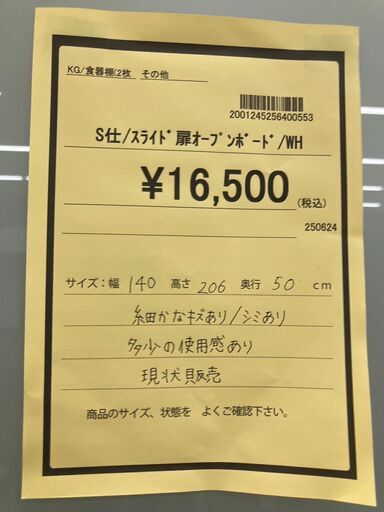 KG/食器棚(2枚 その他
2001245256400553
S仕/スライド扉オープンボード/WH
¥16,500(税込)
250624
サイズ:幅 140 高さ 206 奥行 50 cm
細かなキズあり/シミあり
多少の使用感あり
現状販売
商品のサイズ、状態を よくご確認下さい。